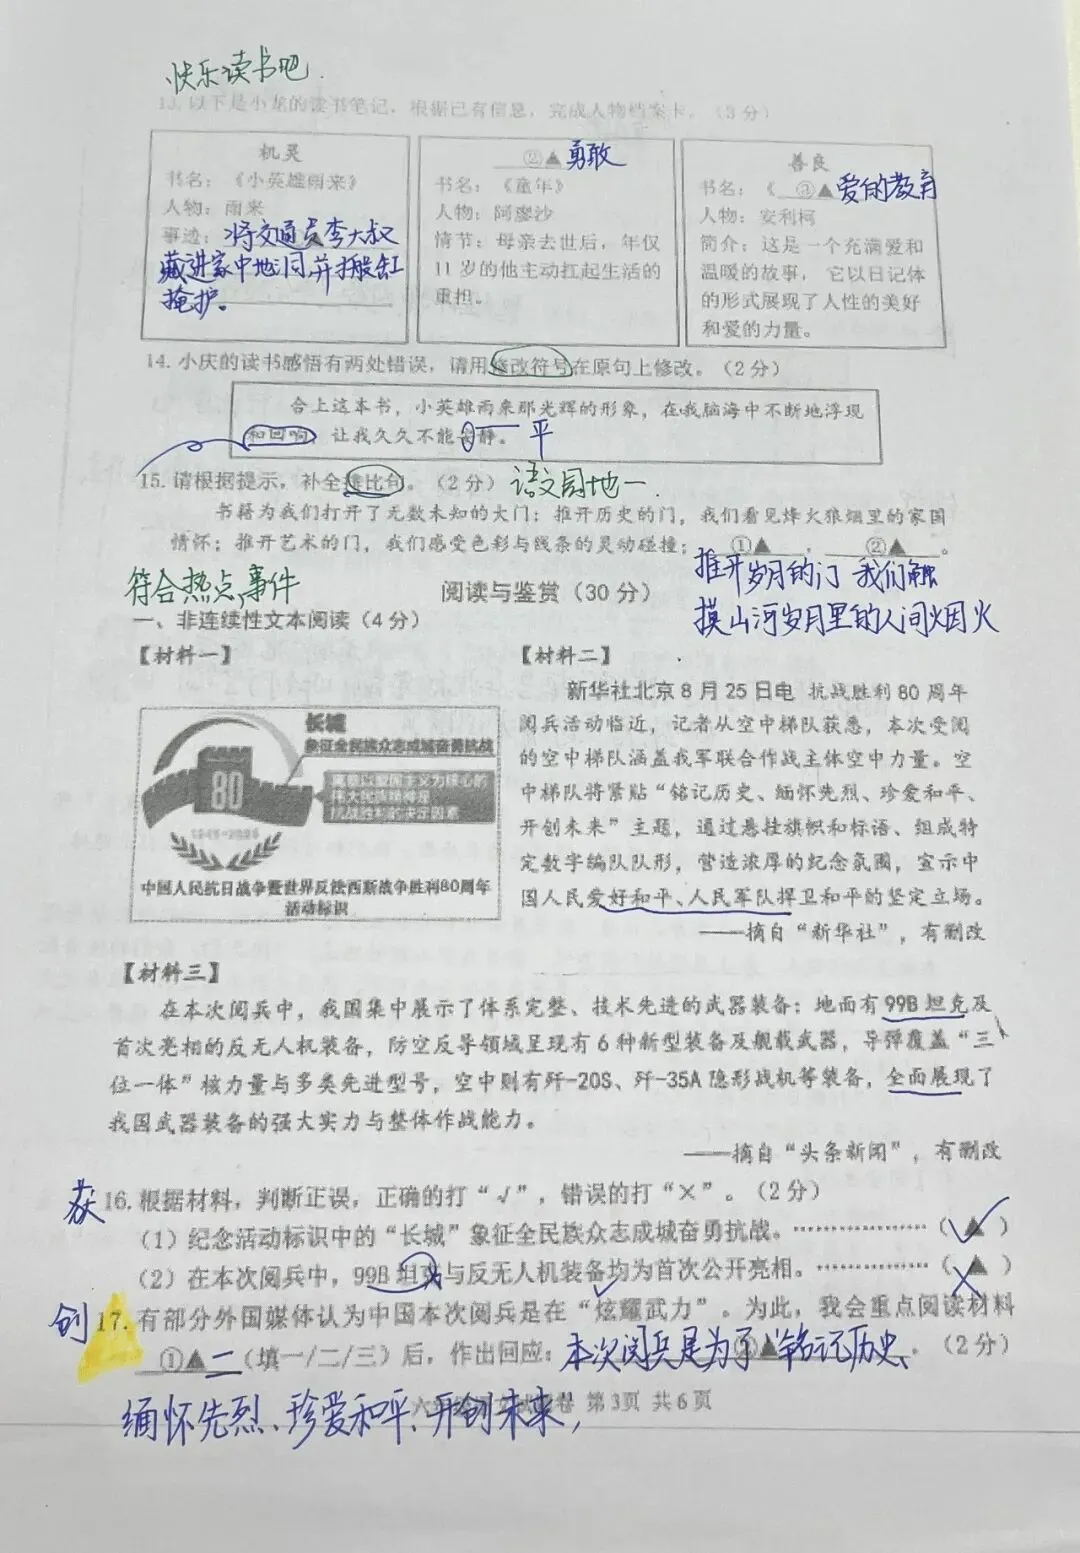 快乐读书吧.
13. 以下是小龙的读书笔记，根据已有信息，完成人物档案卡。（3分）
机灵
书名：《小英雄雨来》
人物：雨来
事迹：将交通员李大叔
藏进家中地洞,并搬缸
掩护。
②▲ 勇敢
书名：《童年》
人物：阿廖沙
情节：母亲去世后，年仅
11岁的他主动扛起生活的
重担。
善良
书名：《 ③▲ 爱的教育
人物：安利柯
简介：这是一个充满爱和
温暖的故事， 它以日记体
的形式展现了人性的美好
和爱的力量。
14. 小庆的读书感悟有两处错误，请用修改符号在原句上修改。（2分）
合上这本书，小英雄雨来那光辉的形象，在我脑海中不断地浮现
和回响，让我久久不能安静。 平
15. 请根据提示，补全排比句。（2分） 语文园地一.
书籍为我们打开了无数未知的大门：推开历史的门，我们看见烽火狼烟里的家国
情怀；推开艺术的门，我们感受色彩与线条的灵动碰撞； ①▲ ， ②▲ 。
推开岁月的门 我们触
摸山河岁月里的人间烟火
符合热点事件
阅读与鉴赏（30分）
一、非连续性文本阅读（4分）
【材料一】
长城
象征全民族众志成城奋勇抗战
80
1945-2025
中国人民抗日战争暨世界反法西斯战争胜利80周年
活动标识
【材料二】
新华社北京8月25日电 抗战胜利80周年
阅兵活动临近，记者从空中梯队获悉，本次受阅
的空中梯队涵盖我军联合作战主体空中力量。空
中梯队将紧贴“铭记历史、缅怀先烈、珍爱和平、
开创未来”主题，通过悬挂旗帜和标语、组成特
定数字编队队形，营造浓厚的纪念氛围，宣示中
国人民爱好和平、人民军队捍卫和平的坚定立场。
——摘自“新华社”，有删改
【材料三】
在本次阅兵中，我国集中展示了体系完整、技术先进的武器装备：地面有99B坦克及
首次亮相的反无人机装备，防空反导领域呈现有6种新型装备及舰载武器，导弹覆盖“三
位一体”核力量与多类先进型号，空中则有歼-20S、歼-35A隐形战机等装备，全面展现了
我国武器装备的强大实力与整体作战能力。
——摘自“头条新闻”，有删改
获 16. 根据材料，判断正误，正确的打“√”，错误的打“×”。（2分）
（1）纪念活动标识中的“长城”象征全民族众志成城奋勇抗战。………………（ ▲ ）√
（2）在本次阅兵中，99B坦克与反无人机装备均为首次公开亮相。………………（ ▲ ）×
创 17. 有部分外国媒体认为中国本次阅兵是在“炫耀武力”。为此，我会重点阅读材料
①▲ 二（填一/二/三）后，作出回应：本次阅兵是为了“铭记历史、 。（2分）
缅怀先烈、珍爱和平、开创未来，
第3页 共6页